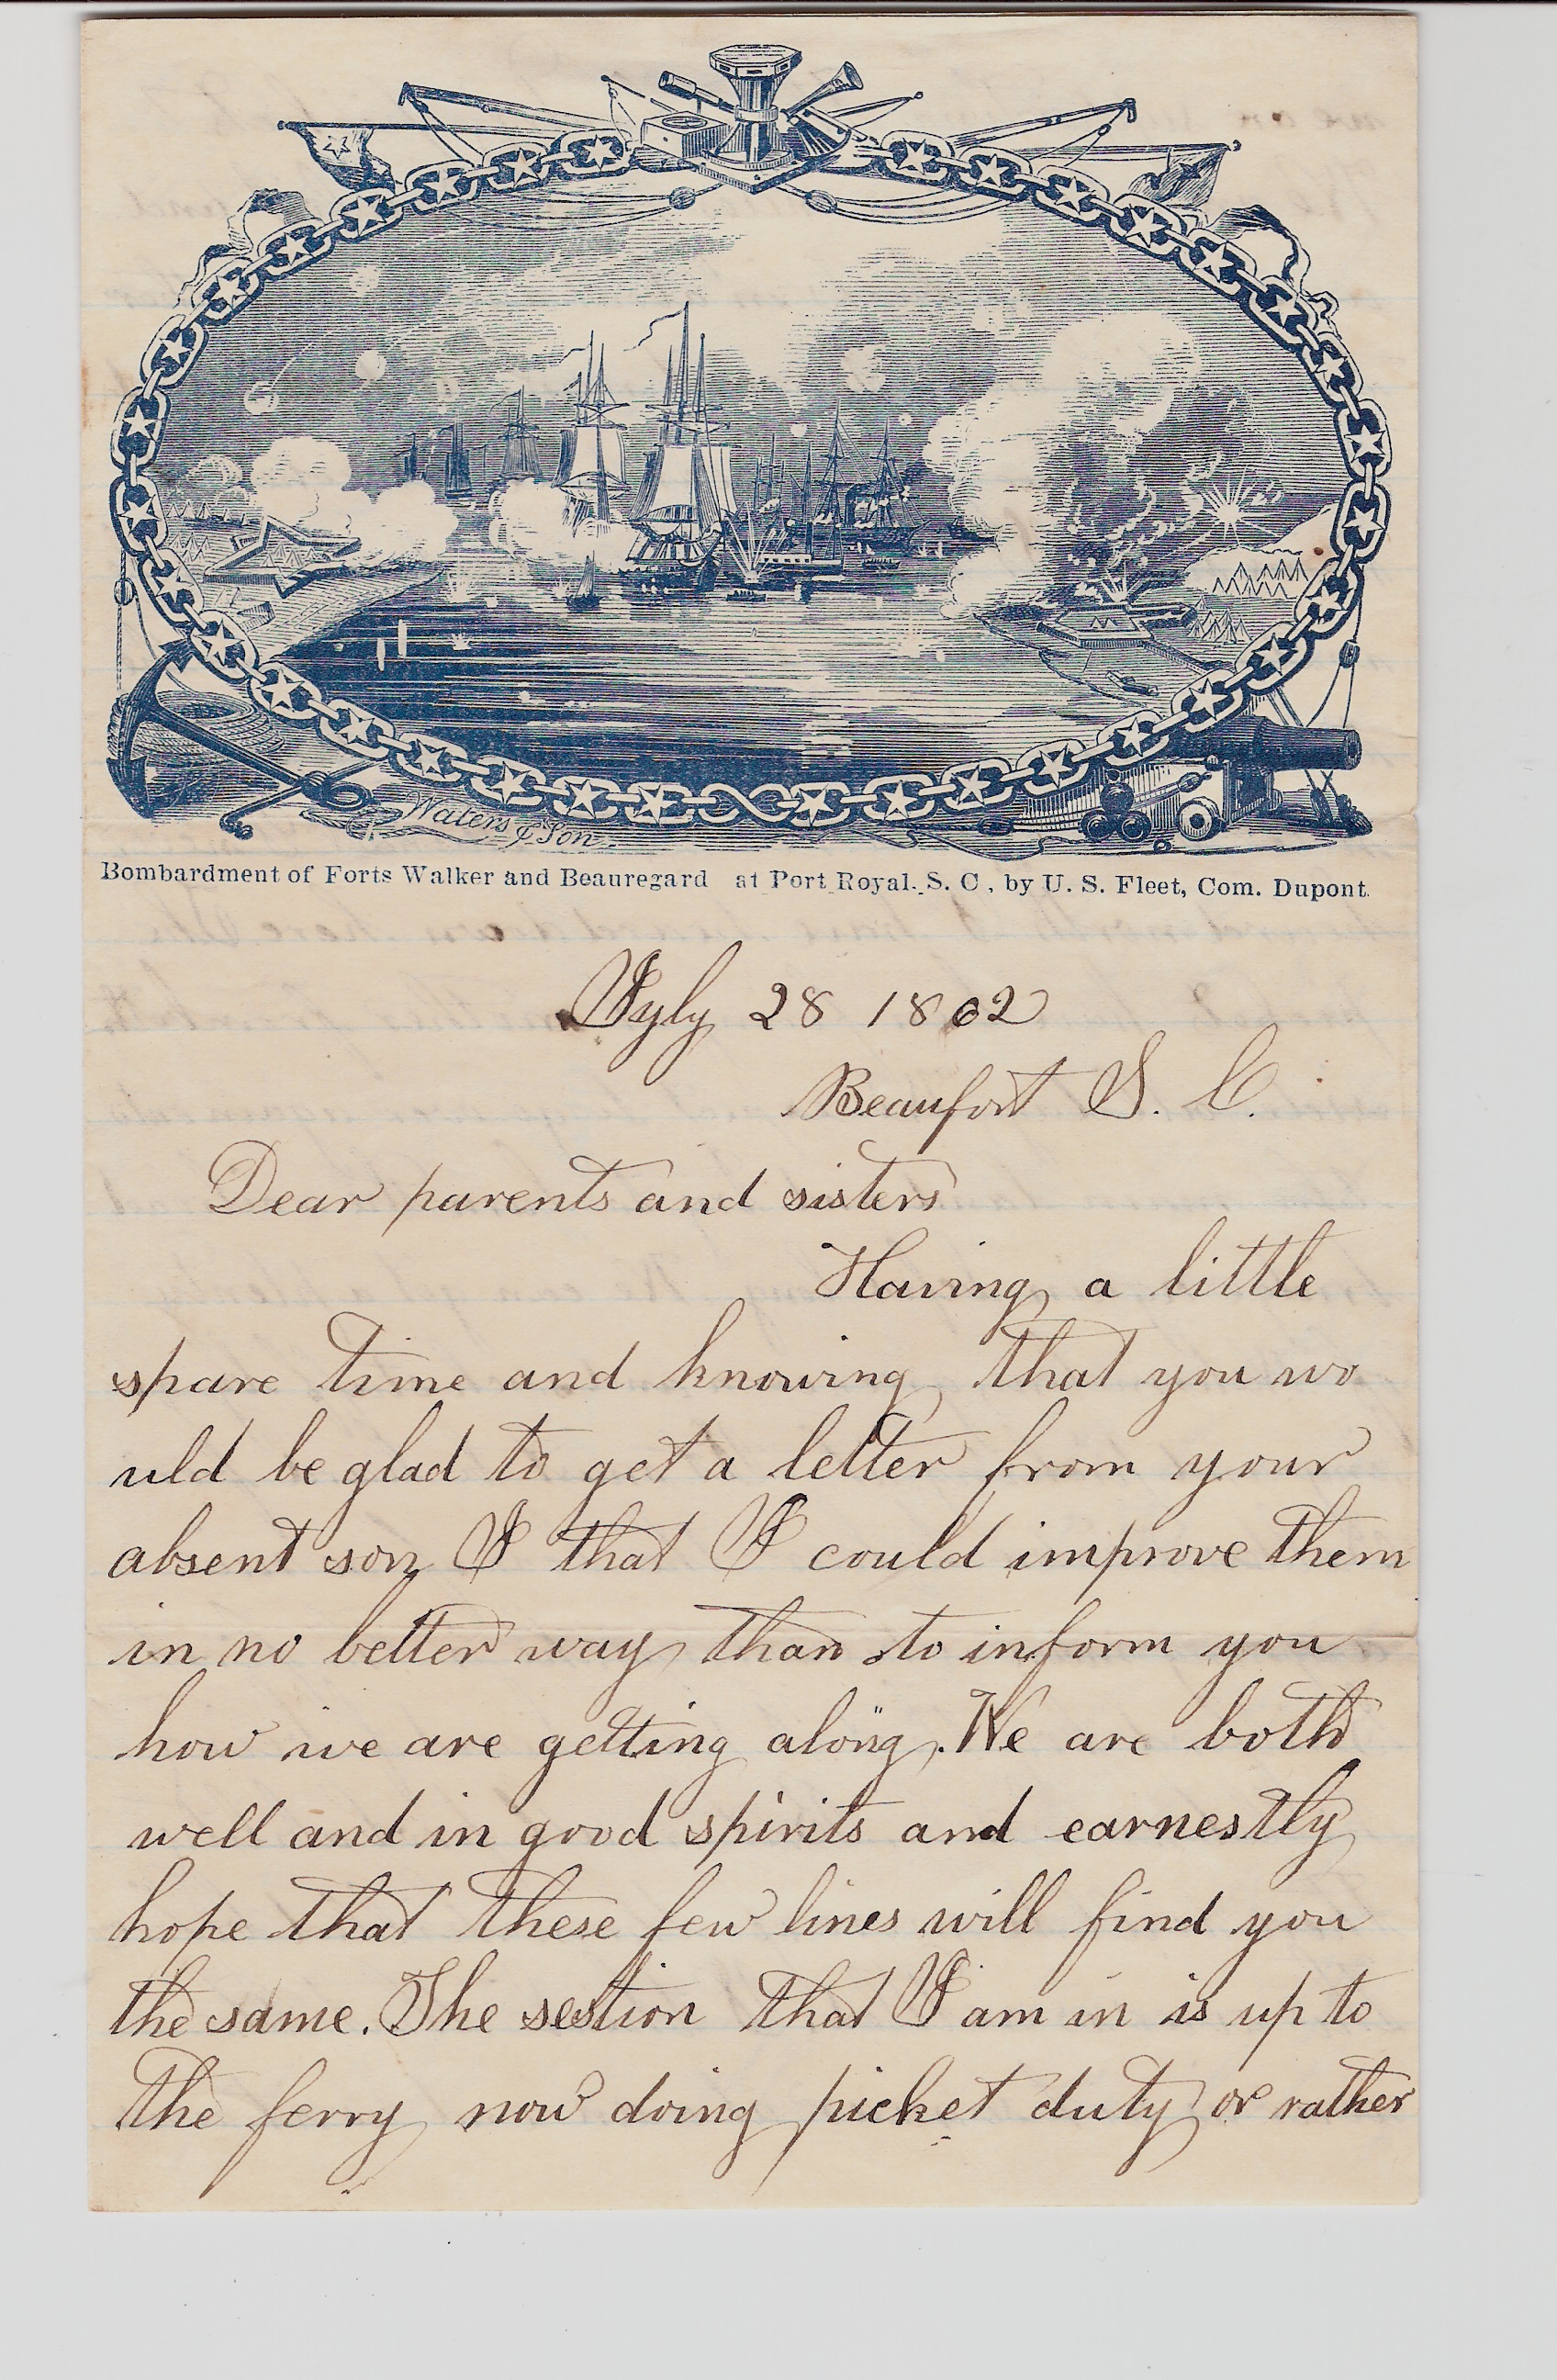 Waters & Son
Bombardment of Forts Walker and Beauregard at Port Royal. S. C, by U. S. Fleet, Com. Dupont.
Jyly 28 1862
Beaufort S. C.
Dear parents and sisters
Having a little
spare time and knowing that you wo
uld be glad to get a letter from your
absent son I that I could improve them
in no better way than to inform you
how we are getting along. We are both
well and in good spirits and earnestly
hope that these few lines will find you
the same. The sestion that I am in is up to
the ferry now doing picket duty or rather